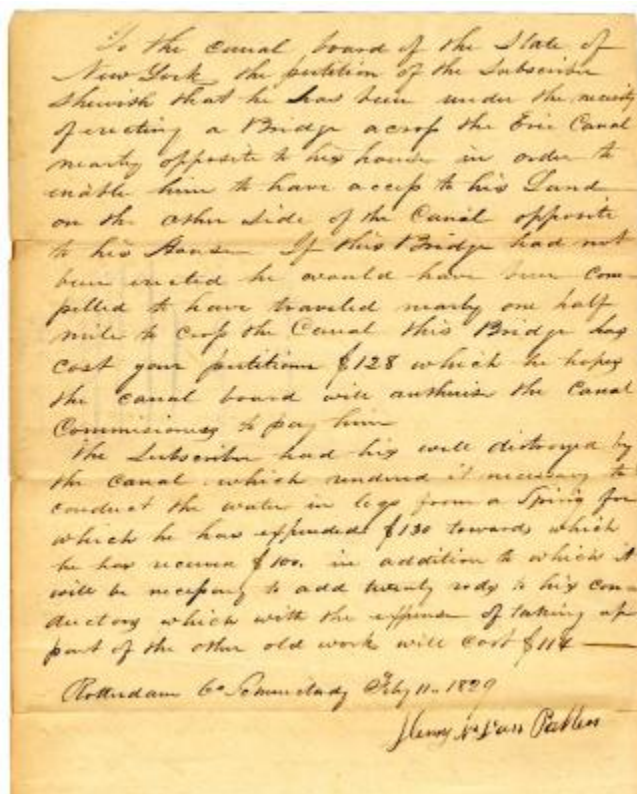 To the Canal board of the State of
New York the petition of the Subscriber
Shewish that he has been under the necesity
of erecting a Bridge across the Erie Canal
nearly opposite to his house in order to
enable him to have access to his Land
on the other side of the Canal opposite
to his House If this Bridge had not
been erected he would have been com-
pelled to have traveled nearly one half
mile to cross the Canal this Bridge has
cost your petitioner $128 which he hopes
the canal board will autherise the Canal
Commisioners to pay him
The Subscriber had his well distroyed by
the Canal which rendered it necessary to
conduct the water in logs from a Spring for
which he has expended $130 towards which
he has received $100. in addition to which it
will be necessary to add twenty rods to his con-
ductors which with the expense of taking up
part of the other old work will cost $114
Rotterdam Co Schenectady Feby 11. 1829
Henry Van